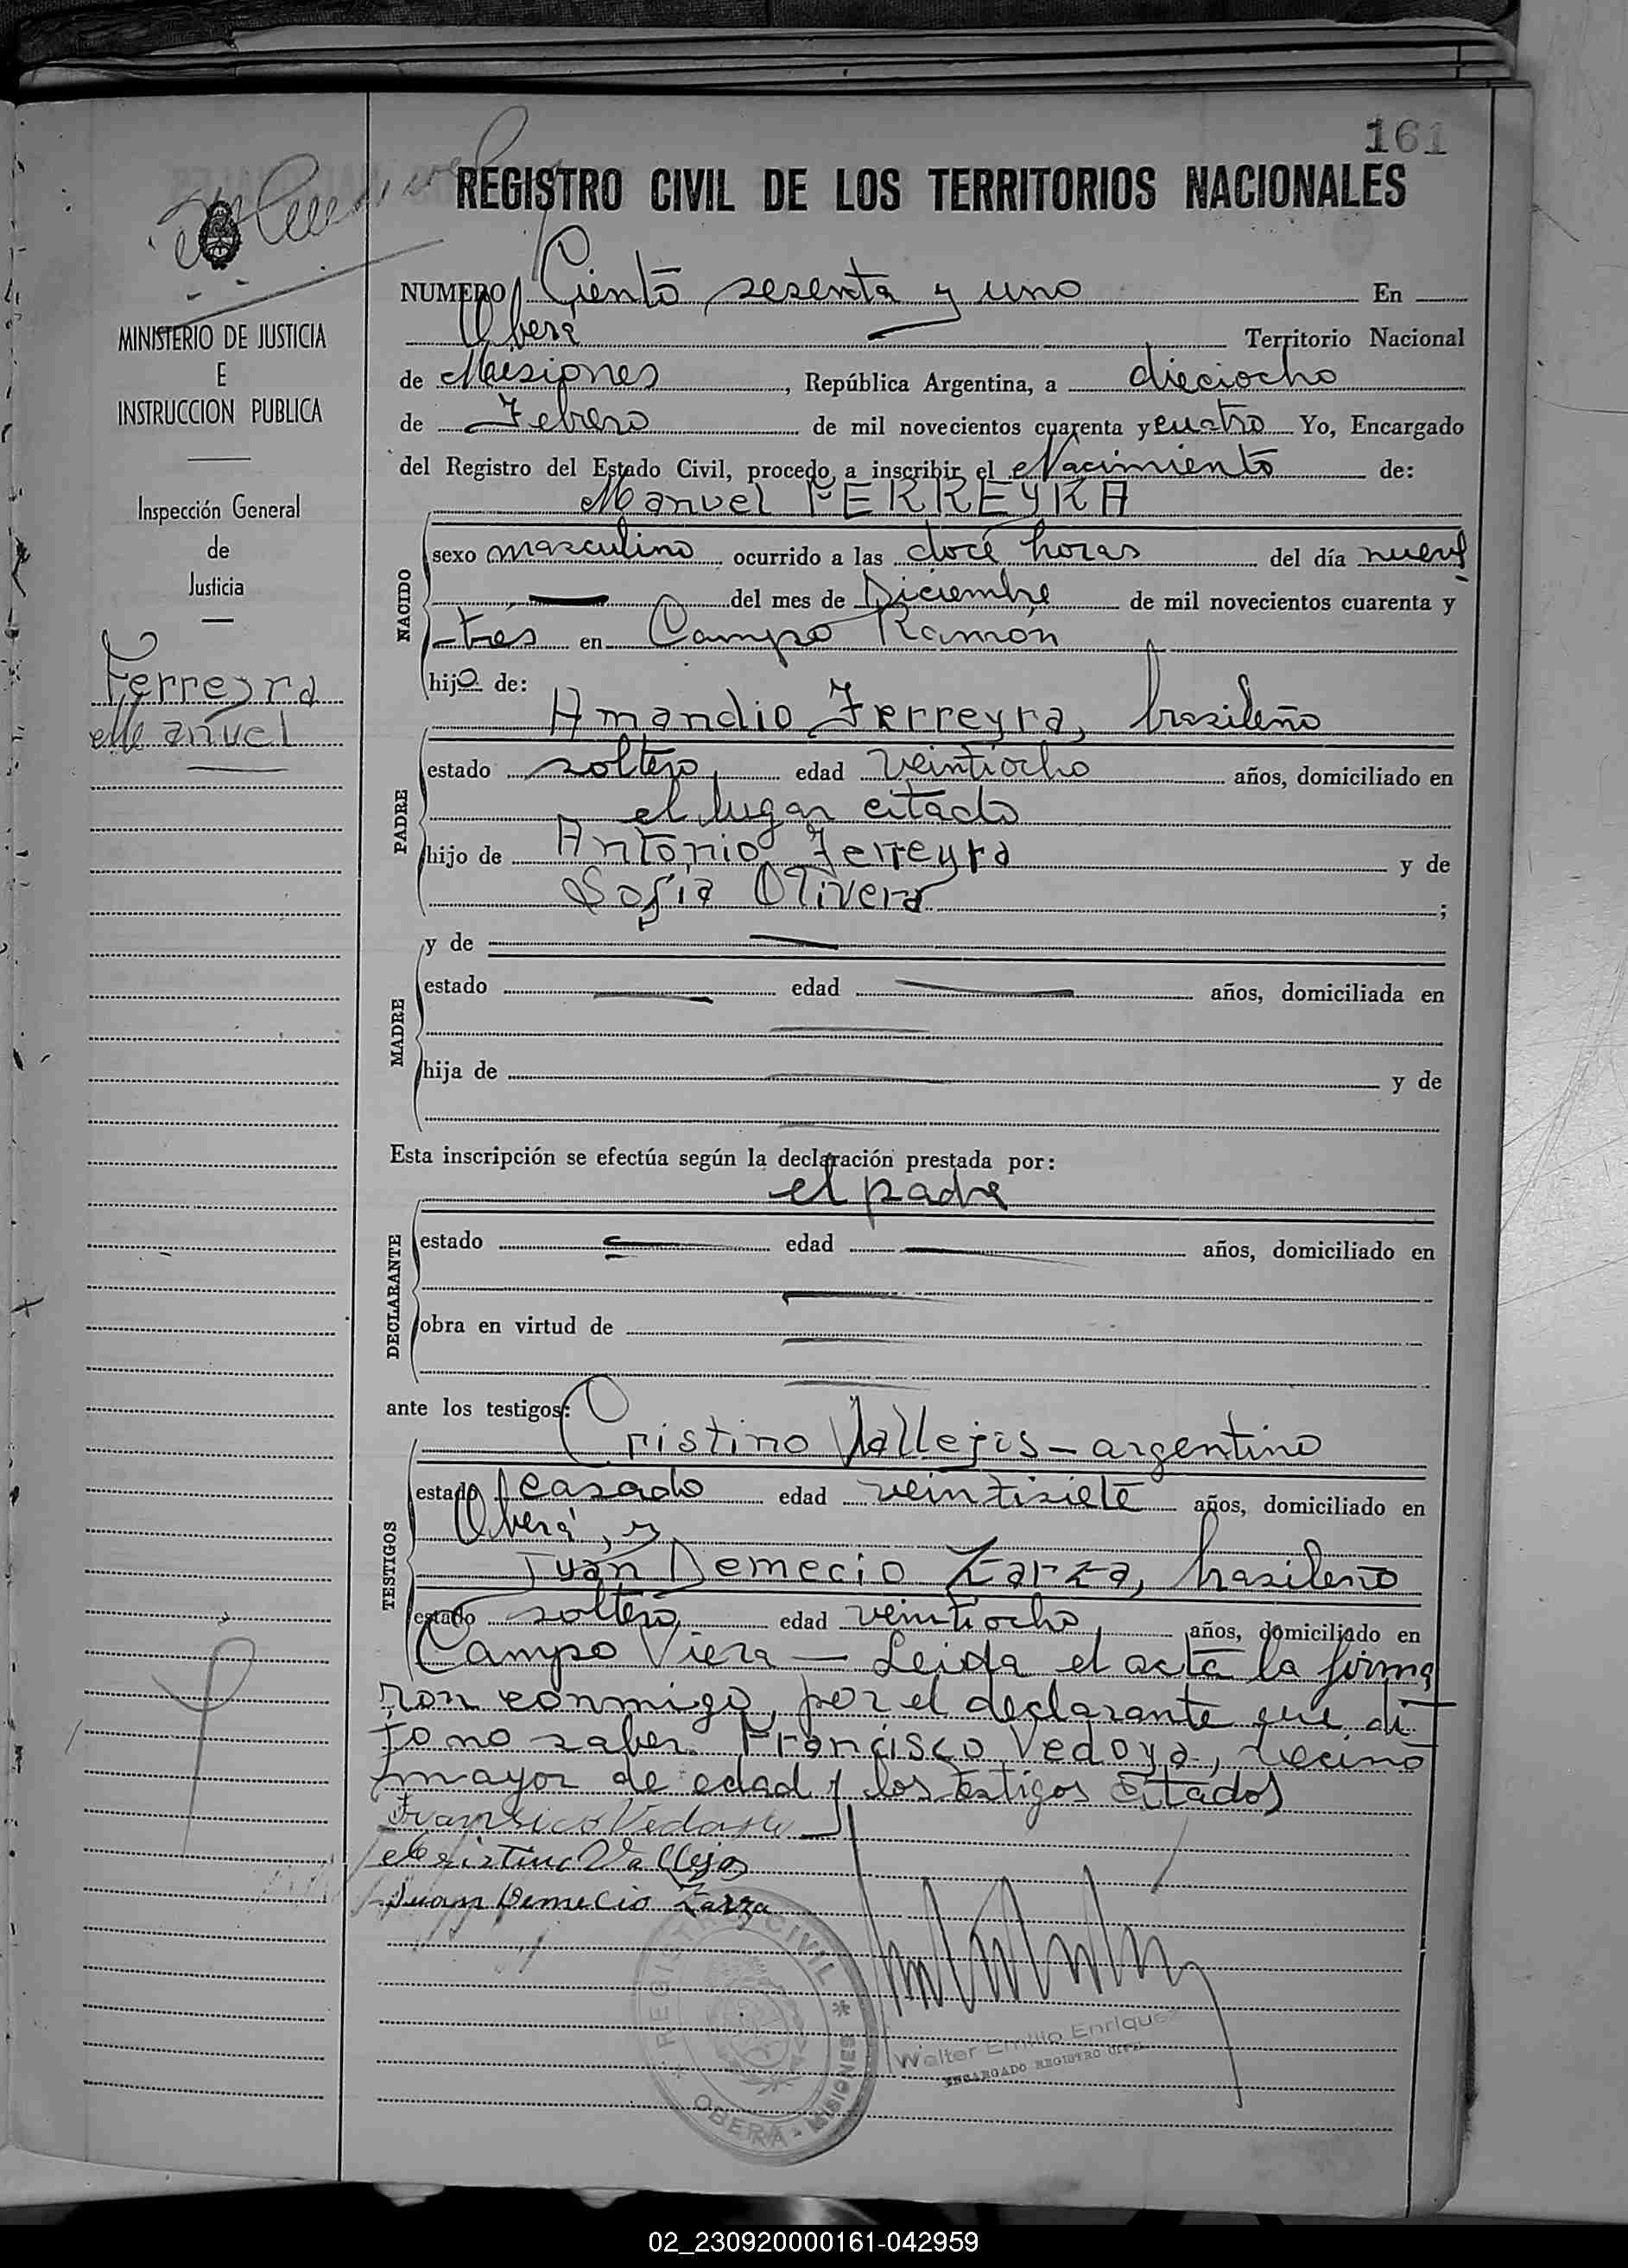 161
REGISTRO CIVIL DE LOS TERRITORIOS NACIONALES
MINISTERIO DE JUSTICIA
E
INSTRUCCION PUBLICA
Inspección General
de
Justicia
Ferreyra
Manuel
NUMERO Ciento sesenta y uno En
Oberá Territorio Nacional
de Misiones, República Argentina, a dieciocho
de Febrero de mil novecientos cuarenta y cuatro Yo, Encargado
del Registro del Estado Civil, procedo a inscribir el Nacimiento de:
Manuel FERREYRA
NACIDO
sexo masculino ocurrido a las doce horas del día nueve
del mes de Diciembre de mil novecientos cuarenta y
tres en Campo Ramón
hijo de:
Amandio Ferreyra, brasileño
PADRE
estado soltero, edad veintiocho años, domiciliado en
el lugar citado
hijo de Antonio Ferreyra y de
Sofia Olivera ;
MADRE
y de
estado edad años, domiciliada en
hija de y de
Esta inscripción se efectúa según la declaración prestada por:
el padre
DECLARANTE
estado edad años, domiciliado en
obra en virtud de
ante los testigos:
Cristino Vallejos - argentino
TESTIGOS
estado casado edad veintisiete años, domiciliado en
Oberá, y
Juan Demecio Zarza, brasileño
estado soltero, edad veintiocho, años, domiciliado en
Campo Viera — Leida el acta la firma
ron conmigo, por el declarante que di
jo no saber Francisco Vedoya, vecino
mayor de edad y los testigos citados
Fransico Vedoya
Cristino Vallejos
Juan Demecio Zarza
REGISTRO CIVIL
OBERA - MISIONES
Walter Emilio Enrique
ENCARGADO REGISTRO CIVIL
02_230920000161-042959